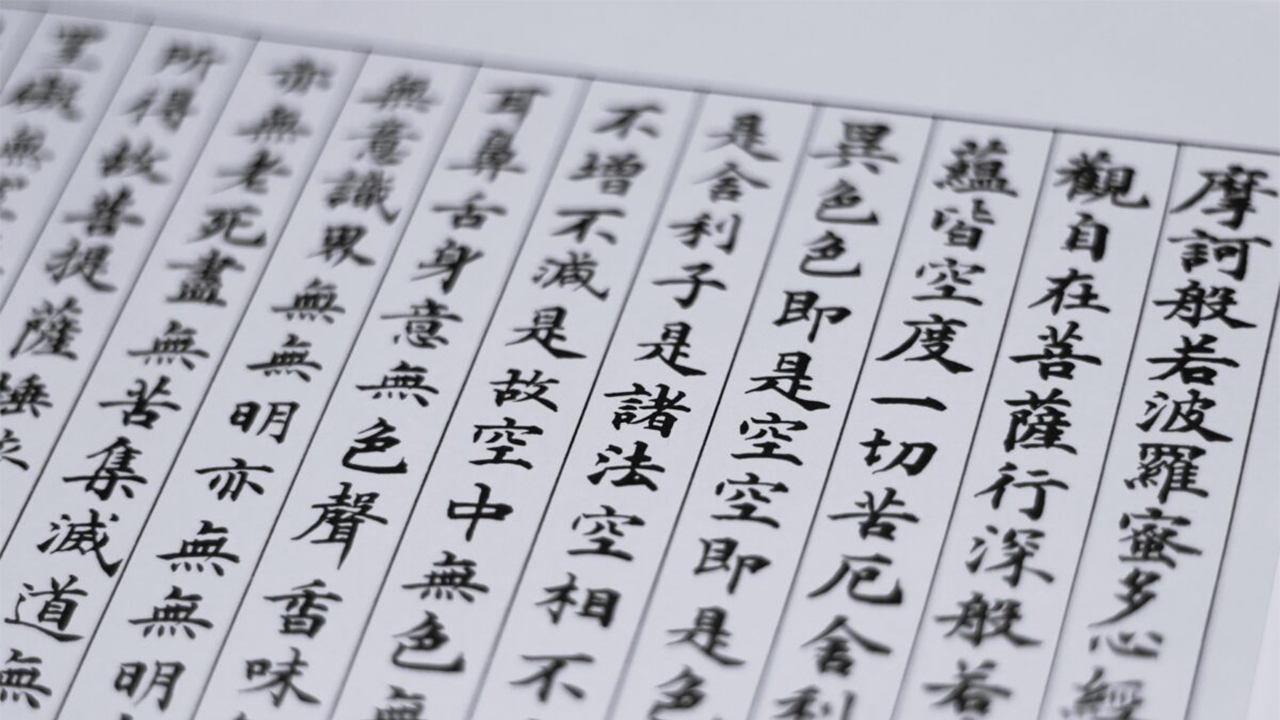 摩訶般若波羅蜜多心經
觀自在菩薩行深般若
蘊皆空度一切苦厄舍利
異色色即是空空即是色
是舍利子是諸法空相不
不增不減是故空中無色無
耳鼻舌身意無色聲香味
無意識界無無明亦無無明
亦無老死盡無苦集滅道無
所得故菩提薩埵
罣礙無